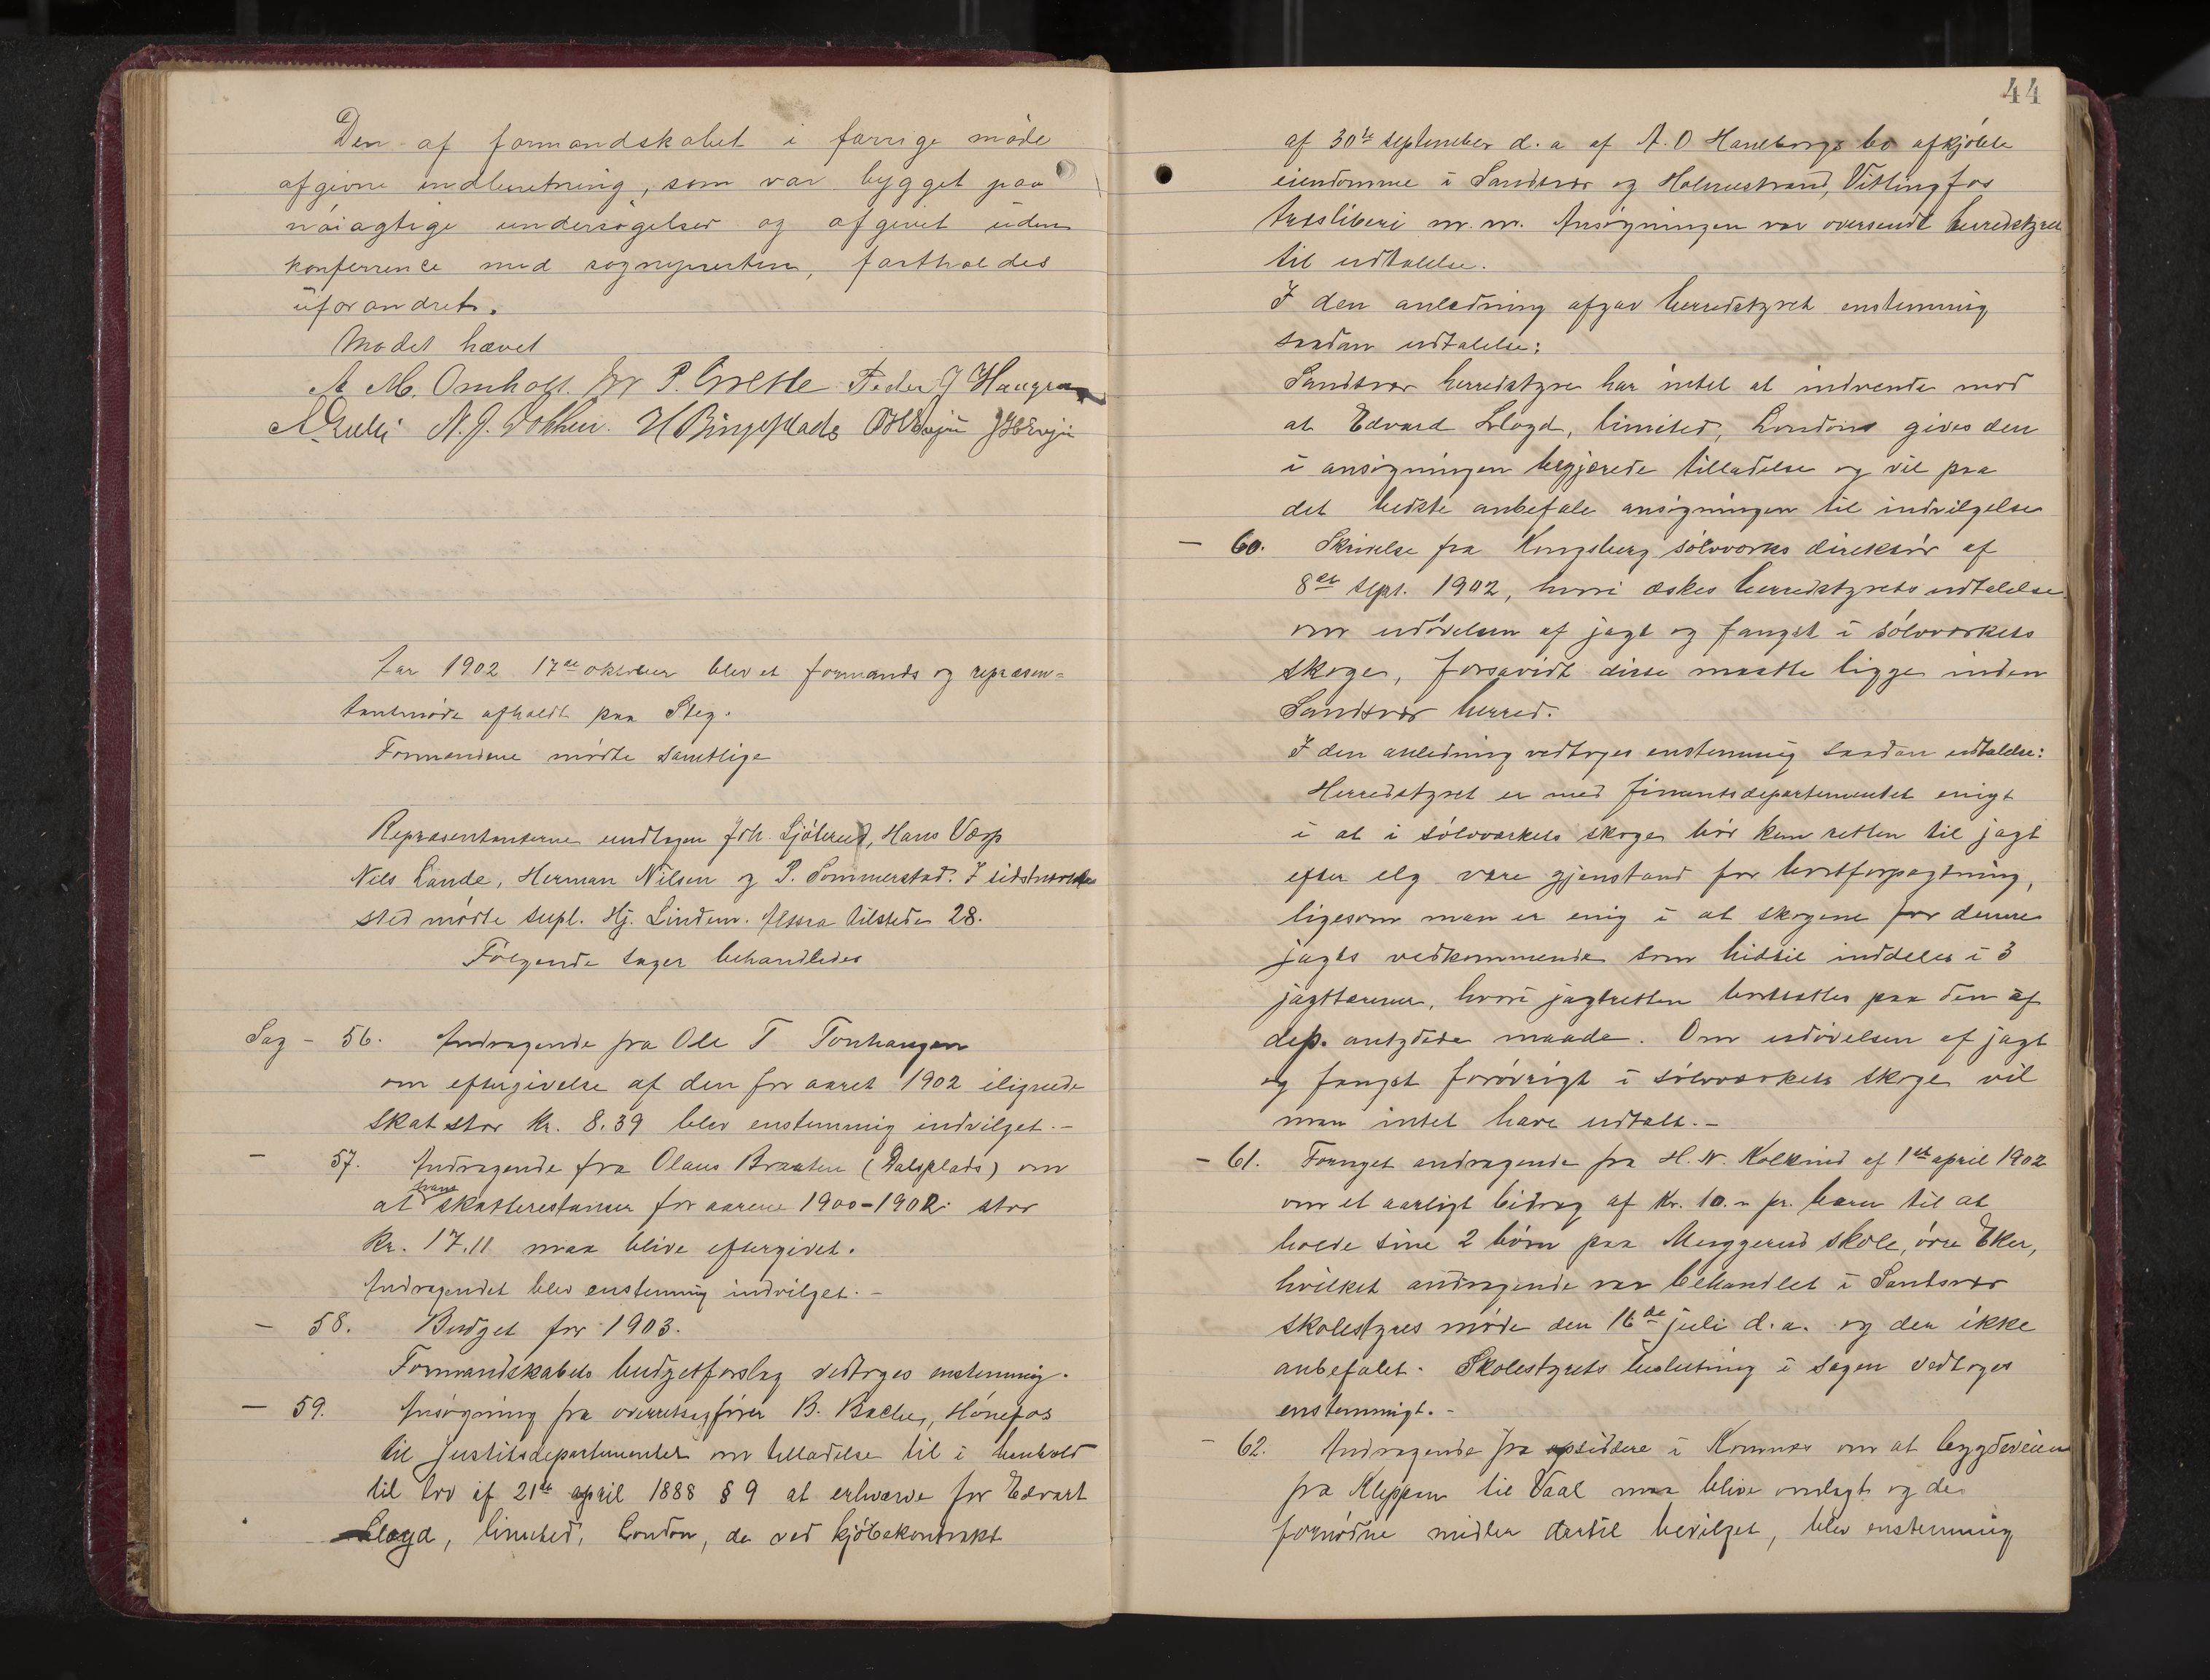 Den af formandskabet i forrige møde
afgivne indberetning, som var bygget paa
nøiagtige undersøgelser og afgivet uden
konferrence med sognepresten, fastholdes
uforandret.
Mødet hævet
A. M. Omholt. P. Grette Peder J Haugen
N. J. H Bingsplads
Aar 1902 17de oktober blev et formands og repræsen=
tantmøde afholdt paa Steg.
Formændene mødte samtlige
Repræsentanterne undtagen Joh. Sjøterud, Hans Værp
Nels Lande, Herman Nilsen og P. Sommerstad. I sidstnævntes
sted mødte supl. Hj. Lindem. Altsaa tilstede 28.
Følgende sager behandledes
Sag - 56. Andragende fra Ole T Tonhaugen
om eftergivelse af den for aaret 1902 ilignede
skat stor kr. 8.39 blev enstemmig indvilget. -
- 57. Andragende fra Olaus Braaten (Dalsplads) om
at hans skatterestancer for aarene 1900-1902 stor
kr. 17.11 maa blive eftergivet.
Andragendet blev enstemmig indvilget. -
- 58. Budget for 1903.
Formandskabets budgetforslag vedtoges enstemmig.
- 59. Ansøgning fra overretssagfører B. Bache, Hønefos
til justitsdepartementet om tilladelse til i henhold
til lov af 21de april 1888 § 9 at erhverve for Edvart
Lloyd, limited, London, de ved kjøbekontrakt
44
af 30te september d. a af A. O Haneborgs bo afkjøbte
eiendomme i Sandsvær og Holmestrand, Vittingfos
træsliberi m. m. Ansøgningen var oversendt herredstyret
til udtalelse.
I den anledning afgav herredstyret enstemmig
saadan udtalelse:
Sandsvær herredstyre har intet at indvende mod
at Edvard Lloyd, limited, London gives den
i ansøgningen begjærede tilladelse og vil paa
det bedste anbefale ansøgningen til indvilgelse
- 60. Skrivelse fra Kongsberg sølvværks direktør af
8de sept. 1902, hvori æskes herredstyrets udtalelse
om udøvelsen af jagt og fangst i sølvværkets
skoge, forsavidt disse maatte ligge inden
Sandsvær herred.
I den anledning vedtoges enstemmig saadan udtalelse:
Herredstyret er med finantsdepartementet enigt
i at i sølvværkets skoge bør kun retten til jagt
efter elg være gjenstand for bortforpagtning,
ligesom man er enig i at skogene for denne
jagts vedkommende som hidtil inddeles i 3
jagtterræner, hvori jagtretten bortsættes paa den af
dep. antydede maade. Om udøvelsen af jagt
og fangst forøvrigt i sølvværkets skoge vil
man intet have udtalt. -
- 61. Fornyet andragende fra H. N. Kolkind af 1ste april 1902
om et aarligt bidrag af kr. 10.- pr. barn til at
holde sine 2 børn paa Menggerud skole, øvre Eker,
hvilket andragende var behandlet i Sandsvær
skolestyres møde den 16de juli d. a. og der ikke
anbefalet. Skolestyrets beslutning i sagen vedtoges
enstemmigt. -
- 62. Andragende fra opsiddere i Komnes om at bygdeveien
fra Kleppan til Vaal maa blive omlagt og de
fornødne midler dertil bevilget, blev enstemmig